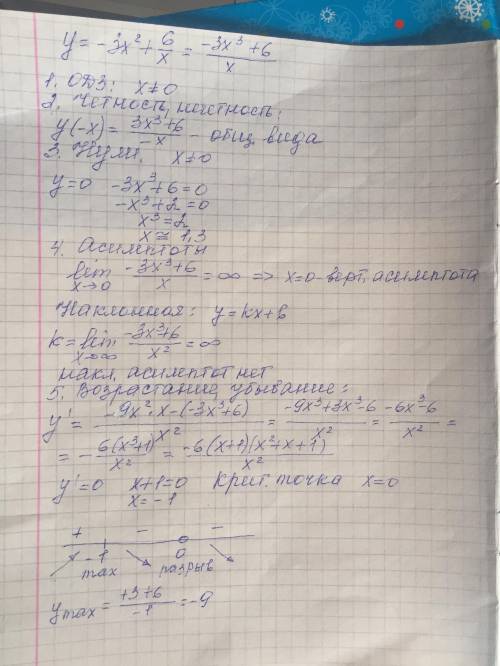 y = -3x² + 6/x = (-3x³+6)/x
1. ОДЗ: x≠0
2. Четность, нечетность:
y(-x) = (3x³+6)/(-x) - общ. вида
3. Нули. x≠0
y=0 -3x³+6=0
-x³+2=0
x³=2
x≅1,3
4. Асимптоты
lim x→0 (-3x³+6)/x = ∞ => x=0 - верт. асимптота
Наклонная: y=kx+b
k = lim x→∞ (-3x³+6)/x² = ∞
накл. асимптот нет
5. Возрастание, убывание:
y' = (-9x²·x-(-3x³+6))/x² = (-9x³+3x³-6)/x² = (-6x³-6)/x² =
= -6(x³+1)/x² = -6(x+1)(x²+x+1)/x²
y'=0 x+1=0 Крит. точка x=0
x=-1
+ - -
-1 0
max разрыв
y max = (+3+6)/-1 = -9